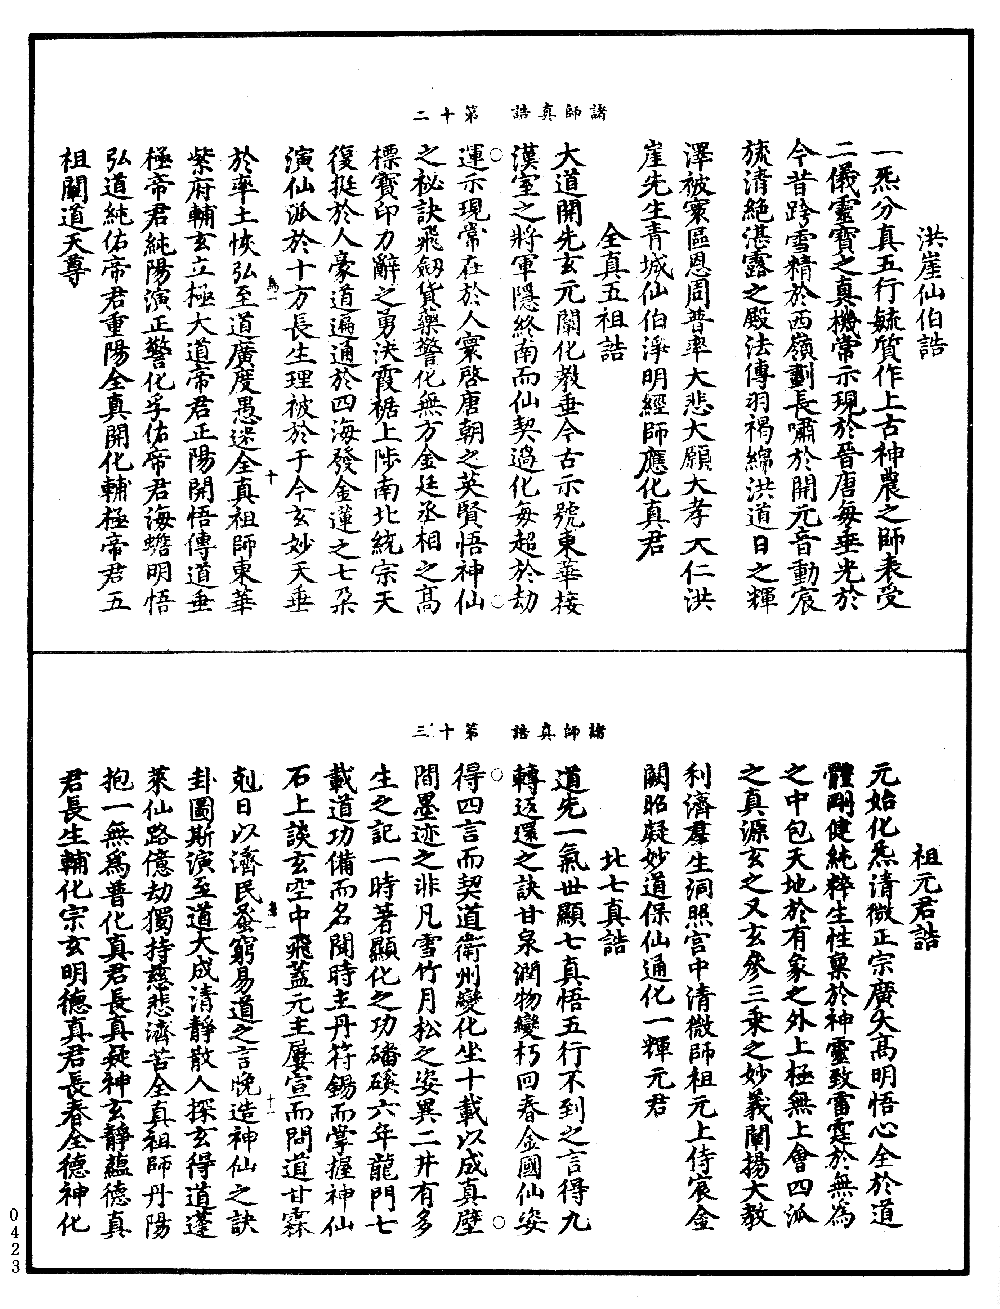 諸師真誥　第十二
洪崖仙伯誥
一炁分真五行毓質作上古神農之師表受
二儀靈寶之真機常示現於晉唐每垂光於
今昔跨雪精於西嶺劃長嘯於開元音動宸
旒清絕湛露之殿法傳羽褐綿洪道日之輝
澤被寰區恩周普率大悲大願大孝大仁洪
崖先生青城仙伯淨明經師應化真君
全真五祖誥
大道開先玄元闡化教垂今古示號東華接
漢室之將軍隱終南而仙契過化每超於劫
運示現常在於人寰啓唐朝之英賢悟神仙
之祕訣飛劒貨藥警化無方金廷丞相之高
標寶印力辭之勇決霞裾上陟南北統宗天
復挺於人豪道遍通於四海發金蓮之七朵
演仙派於十方長生理被於于今玄妙天垂
於率土恢弘至道廣度愚迷全真祖師東華
紫府輔玄立極大道帝君正陽開悟傳道垂
極帝君純陽演正警化孚佑帝君海蟾明悟
弘道純佑帝君重陽全真開化輔極帝君五
祖闡道天尊
十
諸師真誥　第十三
祖元君誥
元始化炁清微正宗廣大高明悟心全於道
體剛健純粹生性稟於神靈致雷霆於無為
之中包天地於有象之外上極無上會四派
之真源玄之又玄參三乘之妙義闡揚大教
利濟羣生洞照宫中清微師祖元上侍宸金
闕昭凝妙道保仙通化一輝元君
北七真誥
道先一氣世顯七真悟五行不到之言得九
轉返還之訣甘泉潤物變朽回春金國仙姿
得四言而契道衛州變化坐十載以成真壁
間墨迹之非凡雪竹月松之姿異二井有多
生之記一時著顯化之功磻磎六年龍門七
載道功備而名聞時主丹符錫而掌握神仙
石上談玄空中飛蓋元主屢宣而問道甘霖
剋日以濟民蚤窮易道之言晚造神仙之訣
卦圖斯演至道大成清靜散人探玄得道蓬
萊仙路億劫獨持慈悲濟苦全真祖師丹陽
抱一無為普化真君長真凝神玄靜蘊德真
君長生輔化宗玄明德真君長春全德神化
十一
0423